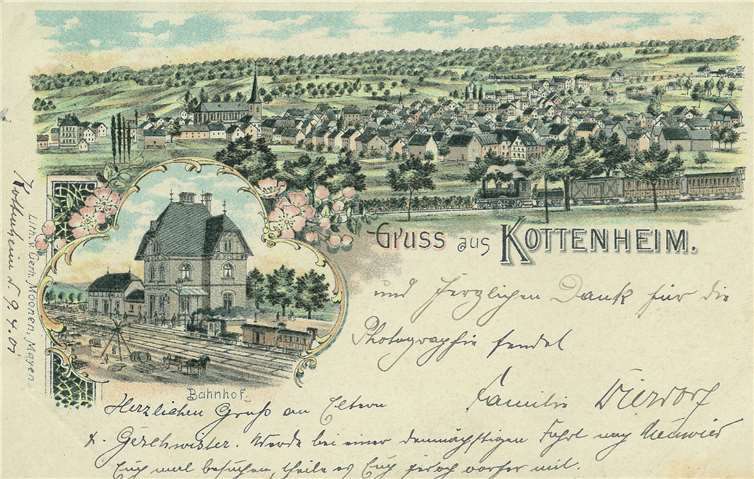 Gruss aus KOTTENHEIM.
und herzlichen Dank für die
Photographie sendet
Familie Dierdorf
Bahnhof.
Herzlichen Gruß an Eltern
& Geschwister. Werde bei einer demnächstigen Fahrt nach Neuwied
Euch mal besuchen, theile es Euch jedoch vorher mit.
Kottenheim d. 9.4.01
Lith. v. Gem. Moonen, Mayen.